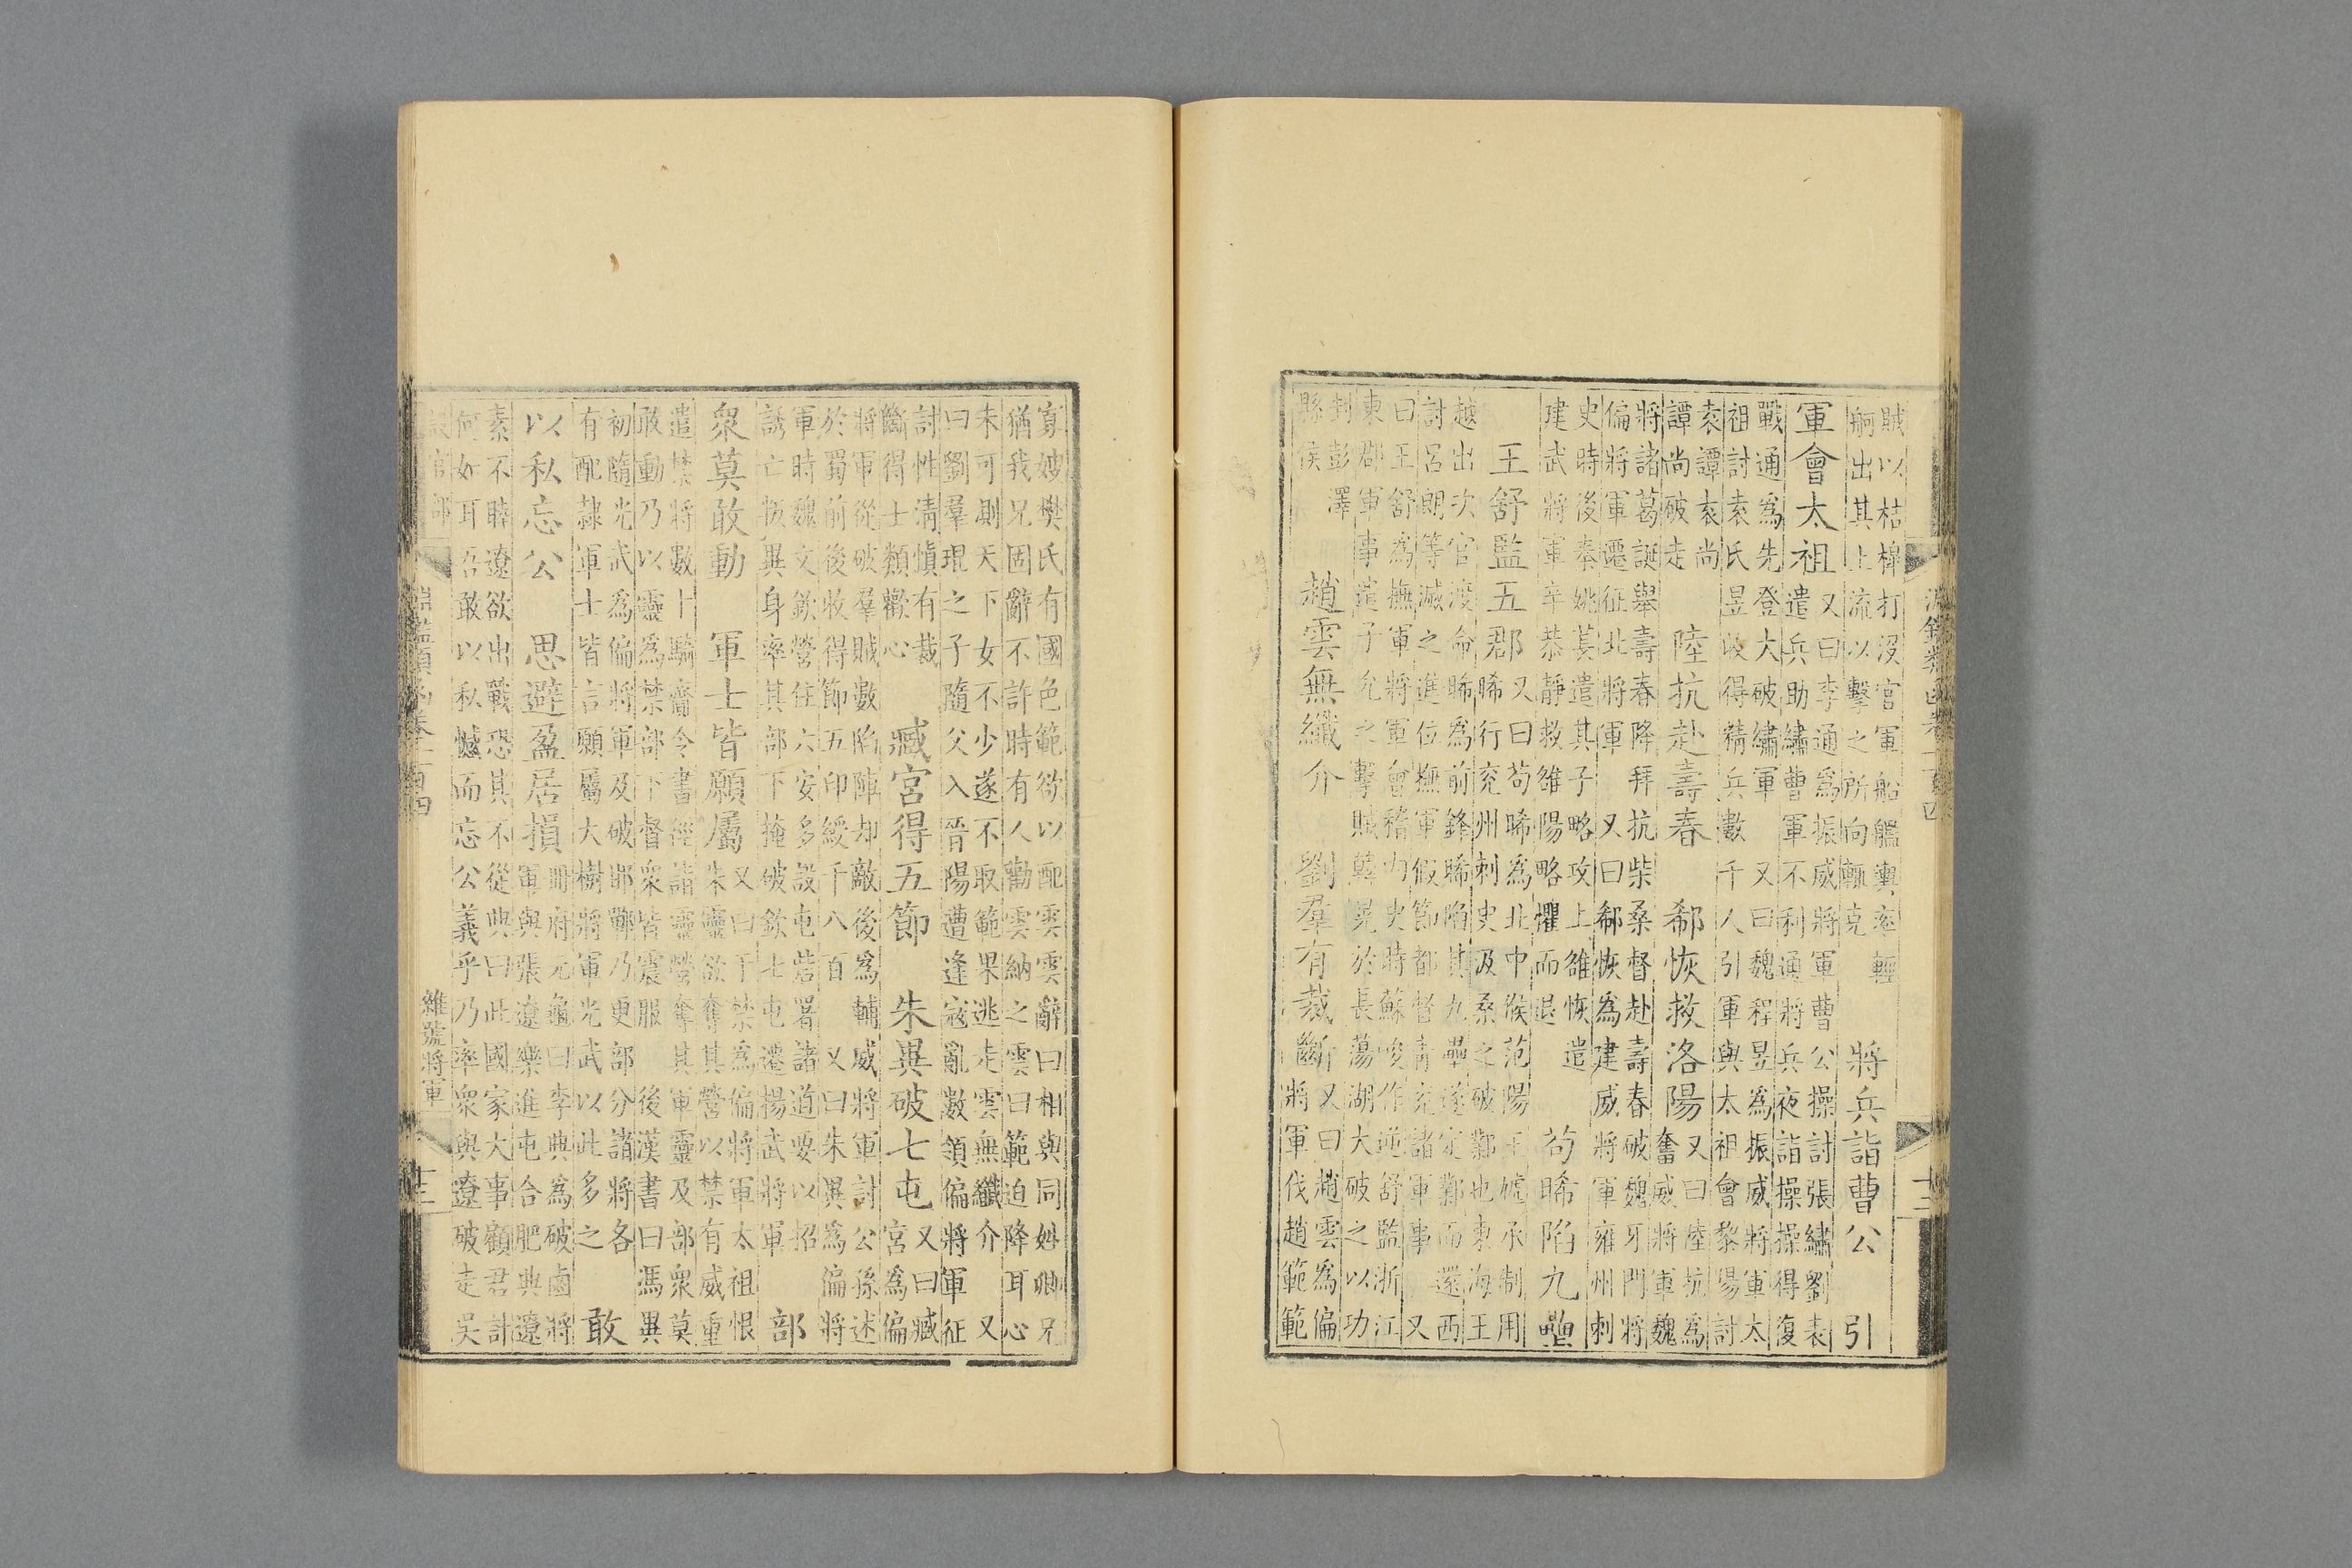 淵鑑類函卷二百四
十二
賊以桔槹打没官軍船艦輿率輕
舸出其上流以擊之所向輒克
將兵詣曹公　引
軍會太祖
又曰李通為振威將軍曹公操討張繡劉表
遣兵助繡曹軍不利通將兵夜詣操操得復
戰通為先登大破繡軍　又曰魏程昱為振威將軍太
祖討袁氏昱收得精兵數千人引軍與太祖會黎陽討
袁譚袁尚
譚尚破走
陸抗赴壽春　郗恢救洛陽
又曰陸抗為
奮威將軍魏
將諸葛誕舉壽春降拜抗柴桑督赴壽春破魏牙門將
偏將軍遷征北將軍　又曰郗恢為建威將軍雍州刺
史時後秦姚萇遣其子略攻上雒恢遣
建武將軍辛恭靜救雒陽略懼而退
苟晞陷九壘
王舒監五郡
又曰苟晞為北中候范陽王虓承制用
晞行兗州刺史汲桑之破鄴也東海王
越出次官渡命晞為前鋒晞陷其九壘遂定鄴而還西
討呂朗等滅之進位撫軍假節都督青兗諸軍事　又
曰王舒為撫軍將軍會稽內史時蘇峻作逆舒監浙江
東郡軍事遣子允之擊賊韓晃於長蕩湖大破之以功
封彭澤
縣侯
趙雲無纖介　劉羣有裁斷
又曰趙雲為偏
將軍伐趙範範
寡嫂樊氏有國色範欲以配雲雲辭曰相與同姓卿兄
猶我兄固辭不許時有人勸雲納之雲曰範迫降耳心
未可測天下女不少遂不取範果逃走雲無纖介　又
曰劉羣琨之子隨父入晉陽遭逢寇亂數領偏將軍征
討性清慎有裁
斷得士類歡心
臧宮得五節　朱異破七屯
又曰臧
宮為偏
將軍從破羣賊數陷陣却敵後為輔威將軍討公孫述
於蜀前後收得節五印綬千八百　又曰朱異為偏將
軍時魏文欽營住六安多設屯砦署諸道要以招
誘亡叛異身率其部下掩破欽七屯遷揚武將軍
部
衆莫敢動　軍士皆願屬
又曰于禁為偏將軍太祖恨
朱靈欲奪其營以禁有威重
遣禁將數十騎齎令書徑詣靈營奪其軍靈及部衆莫
敢動乃以靈為禁部下督衆皆震服　後漢書曰馮異
初隨光武為偏將軍及破邯鄲乃更部分諸將各
有配隸軍士皆言願屬大樹將軍光武以此多之
敢
以私忘公　思避盈居損
冊府元龜曰李典為破鹵將
軍與張遼樂進屯合肥典遼
素不睦遼欲出戰恐其不從典曰此國家大事顧君計
何如耳吾敢以私憾而忘公義乎乃率衆與遼破走吳
設官部
淵鑑類函卷二百四
雜號將軍
十二